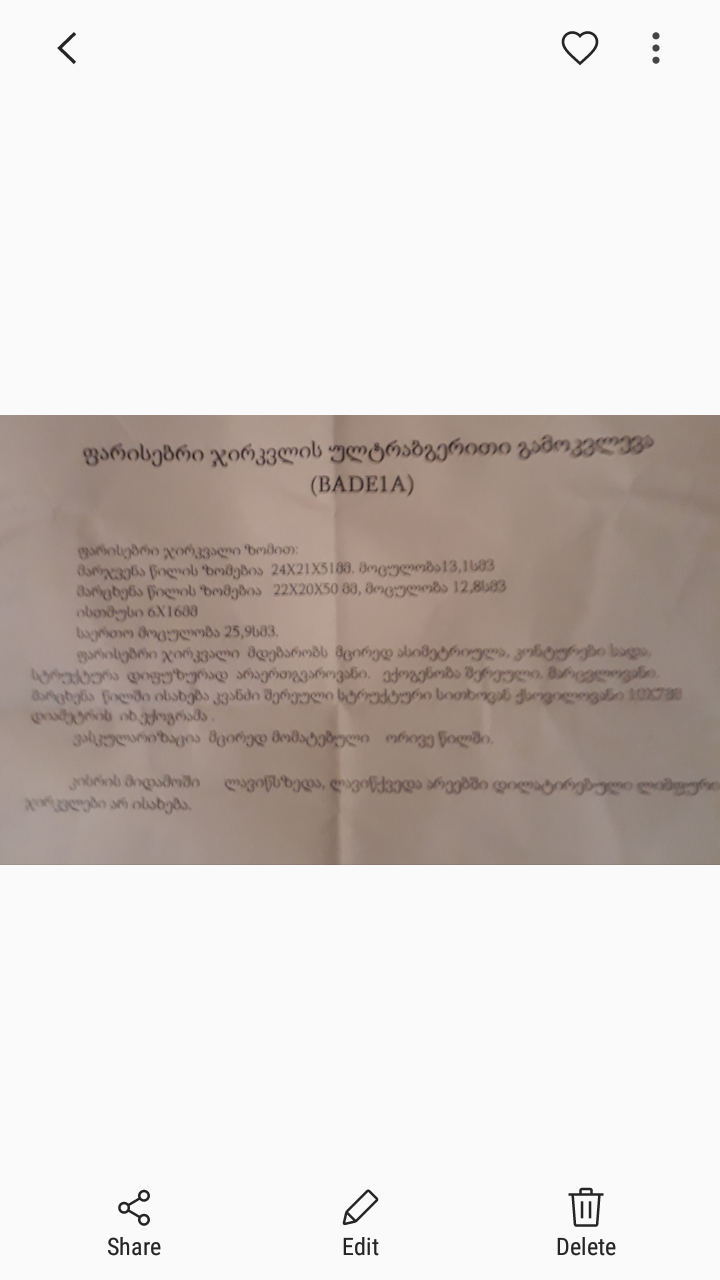 ფარისებრი ჯირკვლის ულტრაბგერითი გამოკვლევა
(BADE1A)
ფარისებრი ჯირკვალი ზომით:
მარჯვენა წილის ზომებია 24X21X51მმ. მოცულობა13,1სმ3
მარცხენა წილის ზომებია 22X20X50 მმ, მოცულობა 12,8სმ3
ისთმუსი 6X16მმ
საერთო მოცულობა 25,9სმ3.
ფარისებრი ჯირკვალი მდებარობს მცირედ ასიმეტრიულა, კონტურები სადა,
სტრუქტურა დიფუზურად არაერთგვაროვანი. ექოგენობა შერეული, მარცვლოვანი.
მარცხენა წილში ისახება კვანძი შერეული სტრუქტური სითხოვან ქსოვილოვანი 10X7მმ
დიამეტრის იხ.ექოგრამა .
ვასკულარიზაცია მცირედ მომატებული ორივე წილში.
კისრის მიდამოში ლავიწსზედა, ლავიწქვედა არეებში დილატირებული ლიმფური
ჯირკვლები არ ისახება.
Share
Edit
Delete